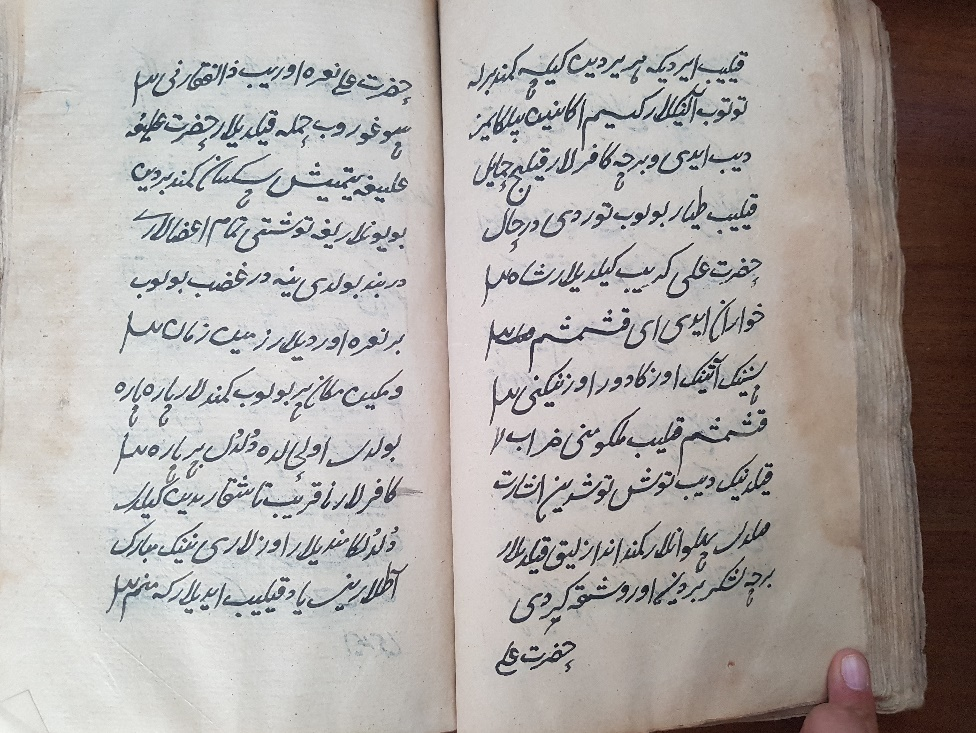 قیلیب ایردیکه هر یردین کیلیه کمند برله
توتوب آلینکلار کسیم اکا نینک پیلکایمیز
دیب ایدی و برچه کافرلار قیلیچ حمایل
قیلیب طیار بولوب توردی در حال
حضرت علی کریب کیلدیلار شاه
خواران ایدی ای قشمشم
سینینک آتینک اوزکا دور اوزنیکنی
قشمشم قیلیب ملکومنی خراب
قیلدینک دیب توش توشدین اشارت
قیلدی پهلوانلار کمند اندازلیق قیلدیلار
برچه لشکر بردین اوروشقه کیردی
حضرت علی
حضرت علی نعره اوریب ذالفقارنی
سوغوروب حمله قیلدیلار حضرت علیغه
علیغه یتمیش سکسان کمند بردین
بویونلاریغه توشتی تمام اعضالاری
دربند بولدی ینه در غضب بولوب
بر نعره اوردیلار زمین زمان
و مکین مکان بر بولوب کمندلار پاره پاره
بولدی اول حالده دلدل بر پاره
کافرلارنا قریب تاشقاریدین کیلدی
دلدلکا مندیلار اوزلاری نینک مبارک
آطلارینی یاد قیلیب ایدیلار که منم